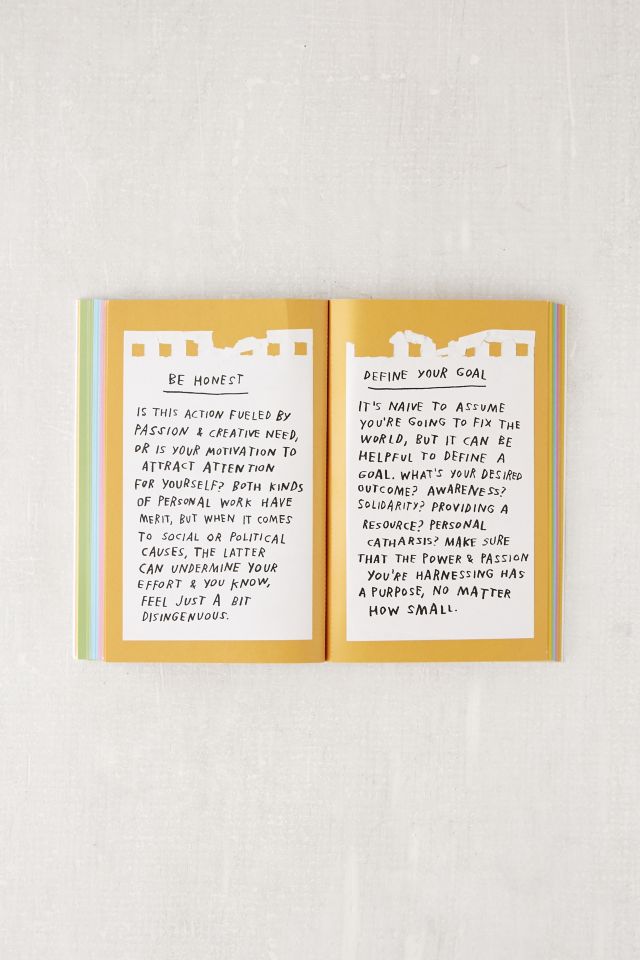 BE HONEST
IS THIS ACTION FUELED BY
PASSION & CREATIVE NEED,
OR IS YOUR MOTIVATION TO
ATTRACT ATTENTION
FOR YOURSELF? BOTH KINDS
OF PERSONAL WORK HAVE
MERIT, BUT WHEN IT COMES
TO SOCIAL OR POLITICAL
CAUSES, THE LATTER
CAN UNDERMINE YOUR
EFFORT & YOU KNOW,
FEEL JUST A BIT
DISINGENUOUS.
DEFINE YOUR GOAL
IT'S NAIVE TO ASSUME
YOU'RE GOING TO FIX THE
WORLD, BUT IT CAN BE
HELPFUL TO DEFINE A
GOAL. WHAT'S YOUR DESIRED
OUTCOME? AWARENESS?
SOLIDARITY? PROVIDING A
RESOURCE? PERSONAL
CATHARSIS? MAKE SURE
THAT THE POWER & PASSION
YOU'RE HARNESSING HAS
A PURPOSE, NO MATTER
HOW SMALL.